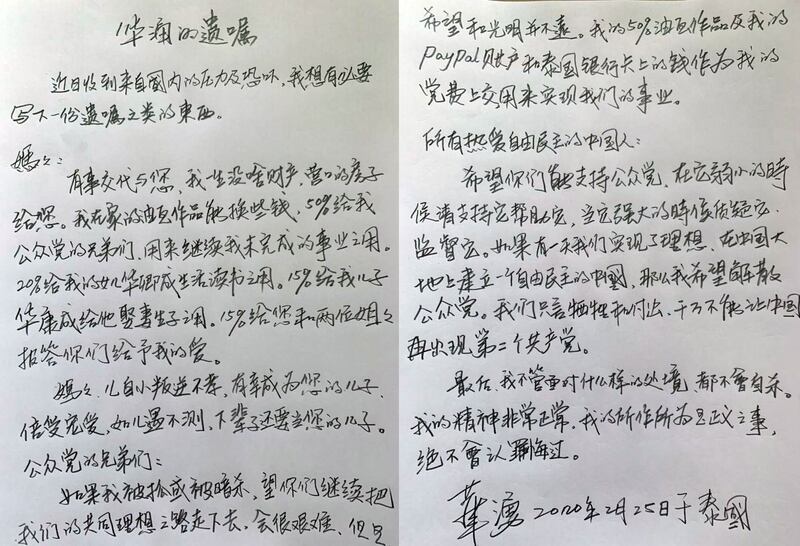 华湧的遗嘱
近日收到来自国内的压力及恐吓,我想有必要
写下一份遗嘱之类的東西。
媽々:
有事交代与您,我一生没啥财产,营口的房子
给您。我在家的油画作品能换些钱,50%给我
公众党的兄弟们,用来继续我未完成的事业之用。
20%给我的女儿华卿成生活读书之用。15%给我儿子
华康成给他娶妻生子之用。15%给您和两位姐々
报答你们给予我的爱。
媽々,儿自小叛逆不孝,有幸成为您的儿子,
倍受宠爱,如儿遇不测,下辈子还要当您的儿子。
公众党的兄弟们:
如果我被抓或被暗杀,望你们继续把
我们的共同理想之路走下去,会很艰难,但是
希望和光明并不遠。我的50%油画作品及我的
PayPal财户和泰国银行卡上的钱作为我的
党费上交用来实现我们的事业。
所有热爱自由民主的中国人:
希望你们能支持公众党,在它弱小的時
侯请支持它帮助它,当它强大的時侯质疑它
监督它。如果有一天我们实现了理想,在中国大
地上建立一个自由民主的中國,那么我希望解散
公众党。我们只享牺牲和付出,千万不能让中国
再出现第二个共产党。
最后,我不管面对什么样的处境,都不會自杀。
我的精神非常正常,我的所作所为是正义之事,
绝不會认罪悔过。
華湧 2020年2月25日于泰國